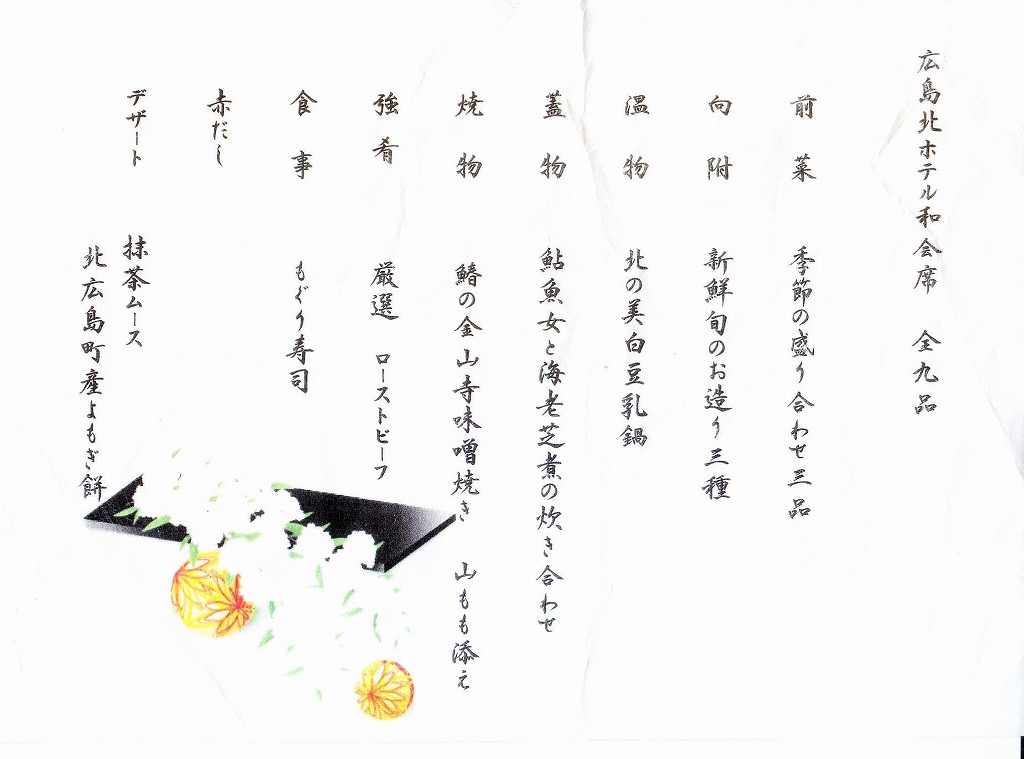 広島北ホテル和会席　全九品
前菜　季節の盛り合わせ三品
向附　新鮮旬のお造り三種
温物　北の美白豆乳鍋
蓋物　鮎魚女と海老芝煮の炊き合わせ
焼物　鰆の金山寺味噌焼き　山もも添え
強肴　厳選　ローストビーフ
食事　もぐり寿司
赤だし
デザート　抹茶ムース
北広島町産よもぎ餅